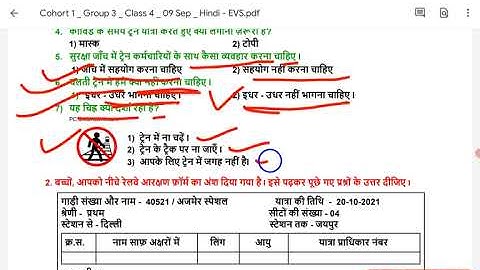 Cohort 1 _ Group 3 _ Class 4 _ 09 Sep _ Hindi - EVS.pdf
4. कोविड के समय ट्रेन यात्रा करते हुए क्या लगाना ज़रूरी है?
1) मास्क 2) टोपी
5. सुरक्षा जाँच में ट्रेन कर्मचारियों के साथ कैसा व्यवहार करना चाहिए।
1) जाँच में सहयोग करना चाहिए 2) सहयोग नहीं करना चाहिए
6. चलती ट्रेन में हमें क्या नहीं करना चाहिए।
1) इधर - उधर भागना चाहिए 2) इधर - उधर नहीं भागना चाहिए।
7) यह चिह्न क्या दर्शा रहा है?
1) ट्रेन में ना चढ़ें।
2) ट्रेन के ट्रैक पर ना जाएँ।
3) आपके लिए ट्रेन में जगह नहीं है।
2. बच्चों, आपको नीचे रेलवे आरक्षण फ़ॉर्म का अंश दिया गया है। इसे पढ़कर पूछे गए प्रश्नों के उत्तर दीजिए।
गाड़ी संख्या और नाम - 40521 / अजमेर स्पेशल यात्रा की तिथि - 20-10-2021
श्रेणी - प्रथम सीटों की संख्या - 04
स्टेशन से - दिल्ली स्टेशन तक - जयपुर
क्र.स. नाम साफ़ अक्षरों में लिंग आयु यात्रा प्राधिकार नंबर